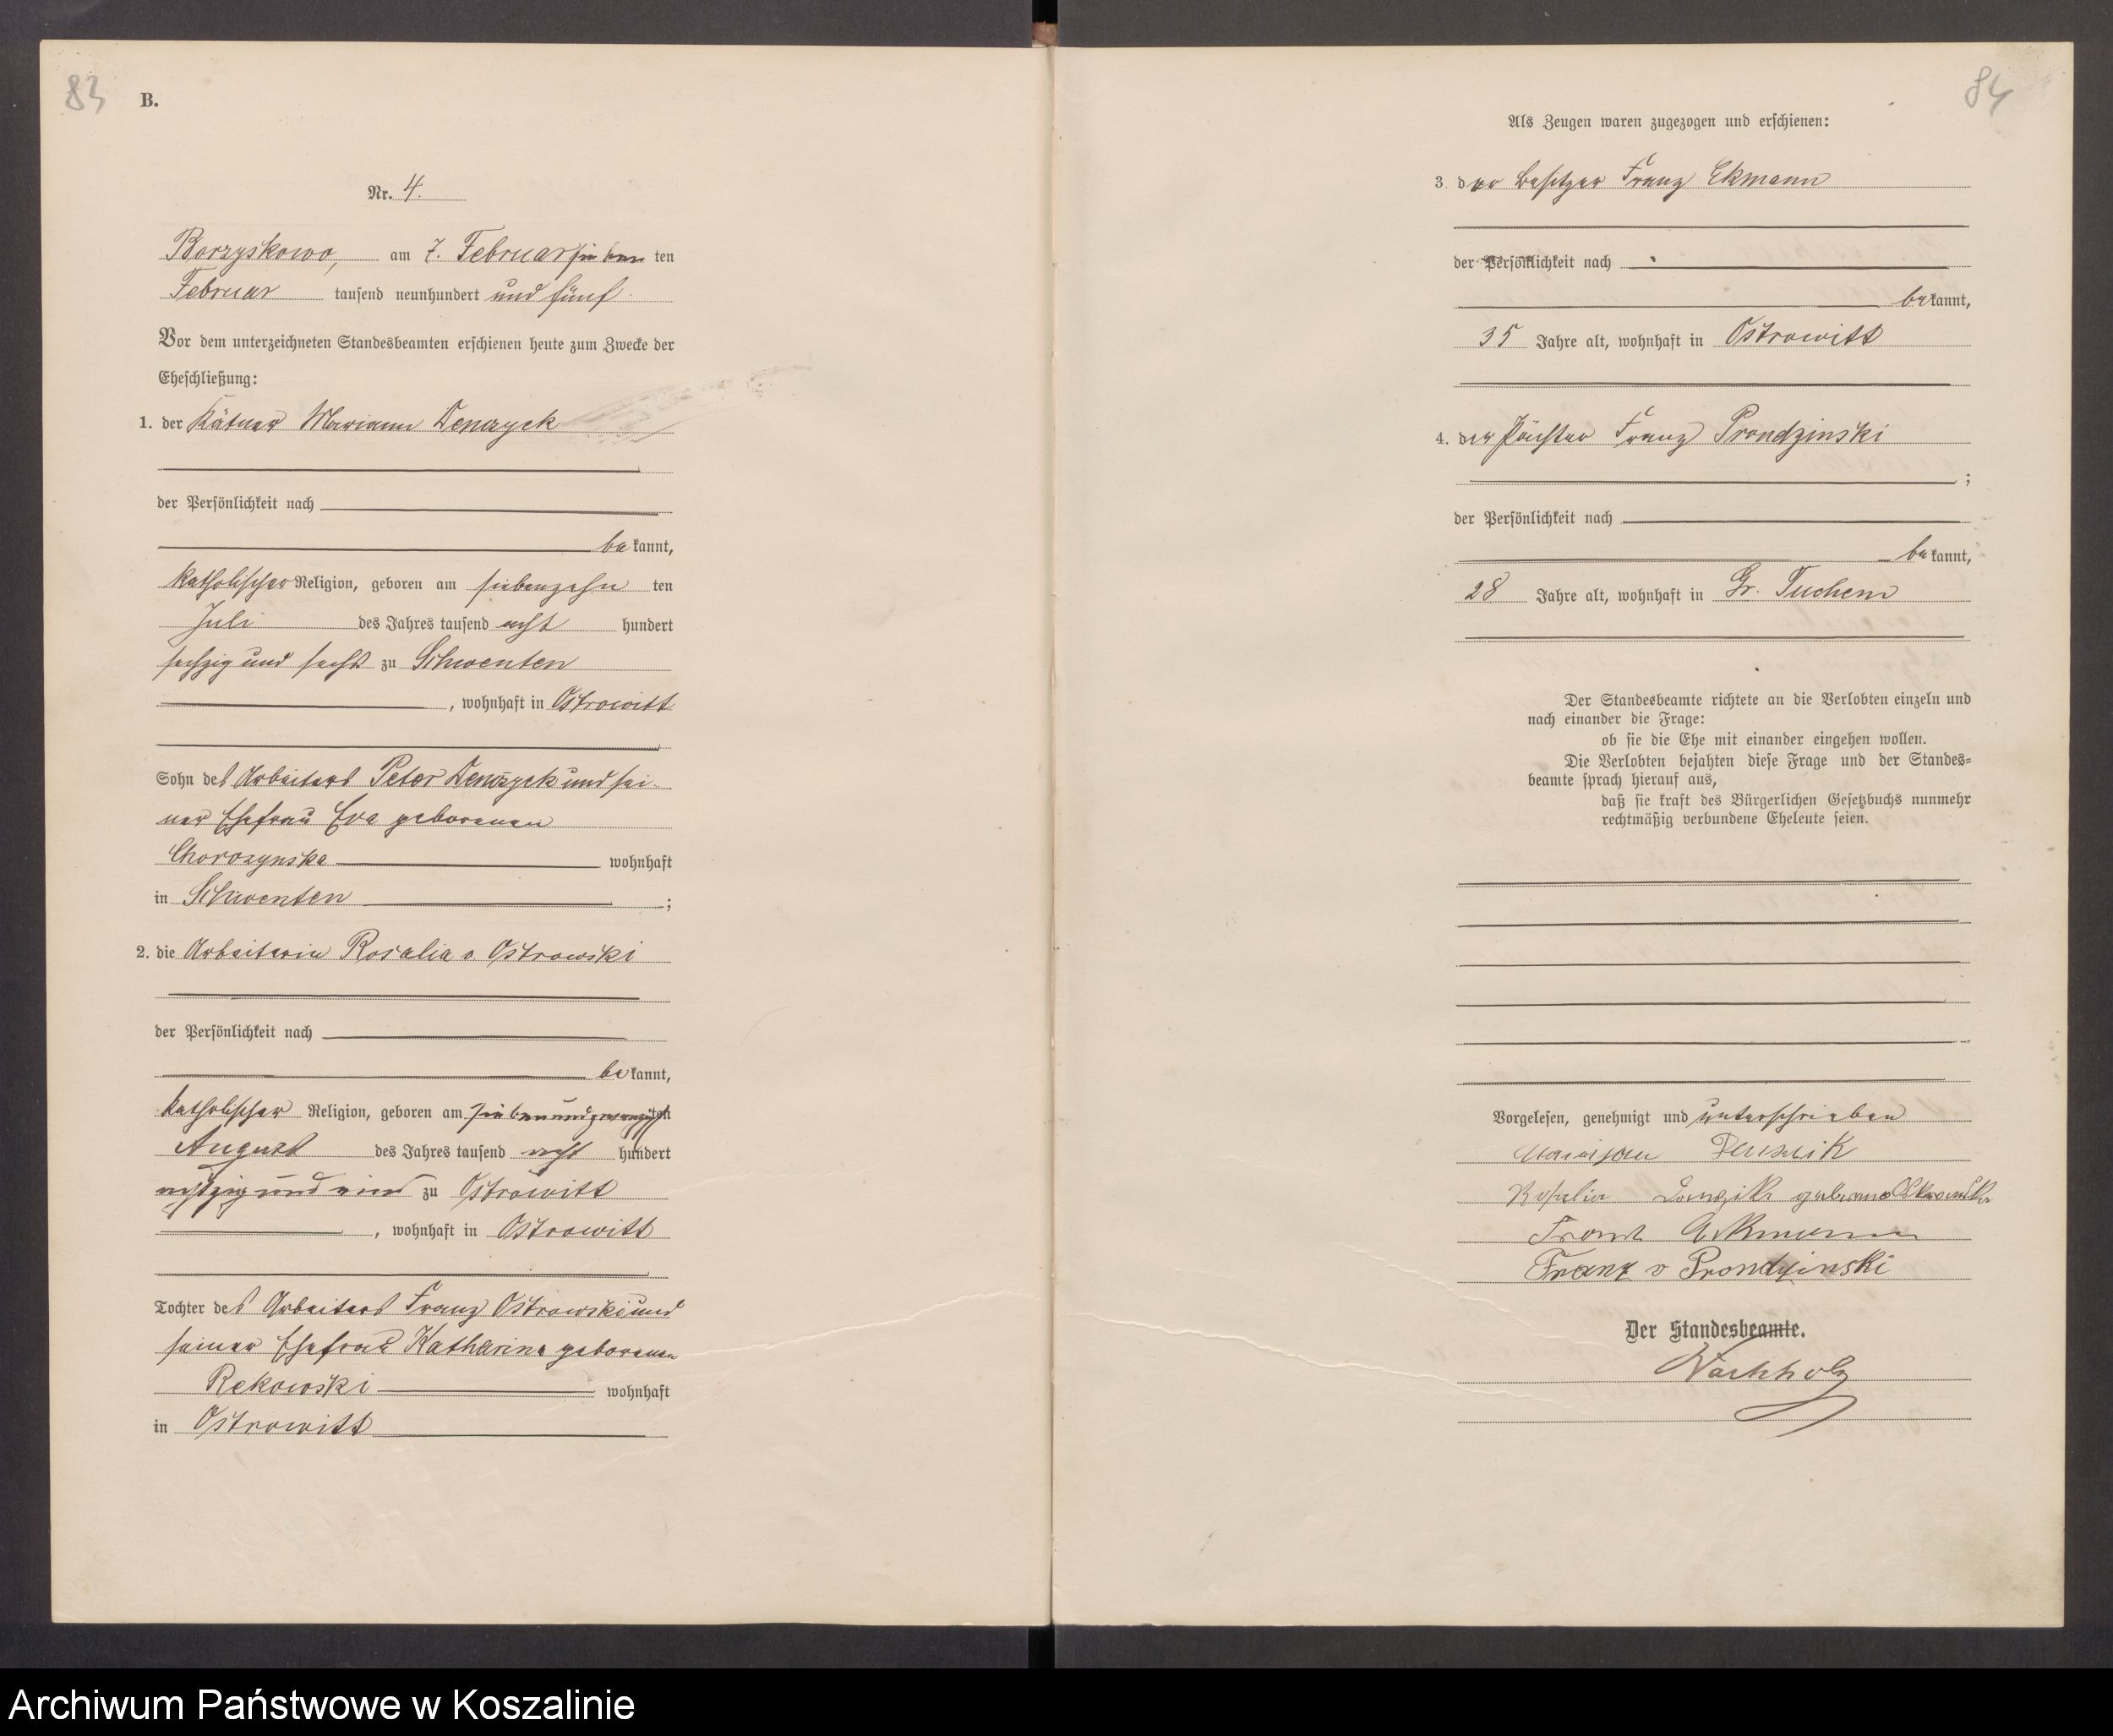 83
B.
Nr. 4.
Borzyskowo, am 7. Februar sieben ten
Februar tausend neunhundert und fünf
Vor dem unterzeichneten Standesbeamten erschienen heute zum Zwecke der
Eheschließung:
1. der Kätner Mariann
der Persönlichkeit nach
be kannt,
katholischer Religion, geboren am siebenzehn ten
Juli des Jahres tausend acht hundert
sechzig und sechs zu Schwenten
, wohnhaft in Ostrowitt
Sohn des Arbeiters Peter und sei-
ner Ehefrau Eva geborenen
wohnhaft
in Schwenten ;
2. die Arbeiterin Rosalia v. Ostrowski
der Persönlichkeit nach
be kannt,
katholischer Religion, geboren am siebenundzwanzigsten
August des Jahres tausend acht hundert
achtzig und eins zu Ostrowitt
, wohnhaft in Ostrowitt
Tochter des Arbeiters Franz Ostrowski und
seiner Ehefrau Katharina geborenen
Rekowski wohnhaft
in Ostrowitt
84
Als Zeugen waren zugezogen und erschienen:
3. der Besitzer Franz Ekmann
der Persönlichkeit nach
be kannt,
35 Jahre alt, wohnhaft in Ostrowitt
4. der Pächter Franz Prondzinski
;
der Persönlichkeit nach
be kannt,
28 Jahre alt, wohnhaft in Gr. Tuchem
Der Standesbeamte richtete an die Verlobten einzeln und
nach einander die Frage:
ob sie die Ehe mit einander eingehen wollen.
Die Verlobten bejahten diese Frage und der Standes-
beamte sprach hierauf aus,
daß sie kraft des Bürgerlichen Gesetzbuchs nunmehr
rechtmäßig verbundene Eheleute seien.
Vorgelesen, genehmigt und unterschrieben
Rosalia geborene
Franz
Franz v Prondzinski
Der Standesbeamte.
Archiwum Państwowe w Koszalinie